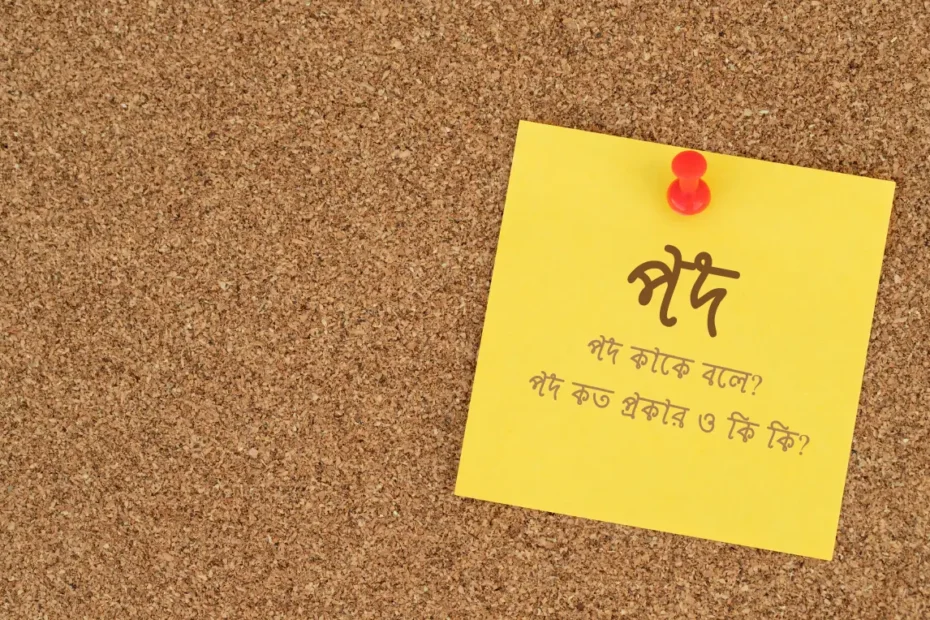 পদ
পদ কাকে বলে?
পদ কত প্রকার ও কি কি?